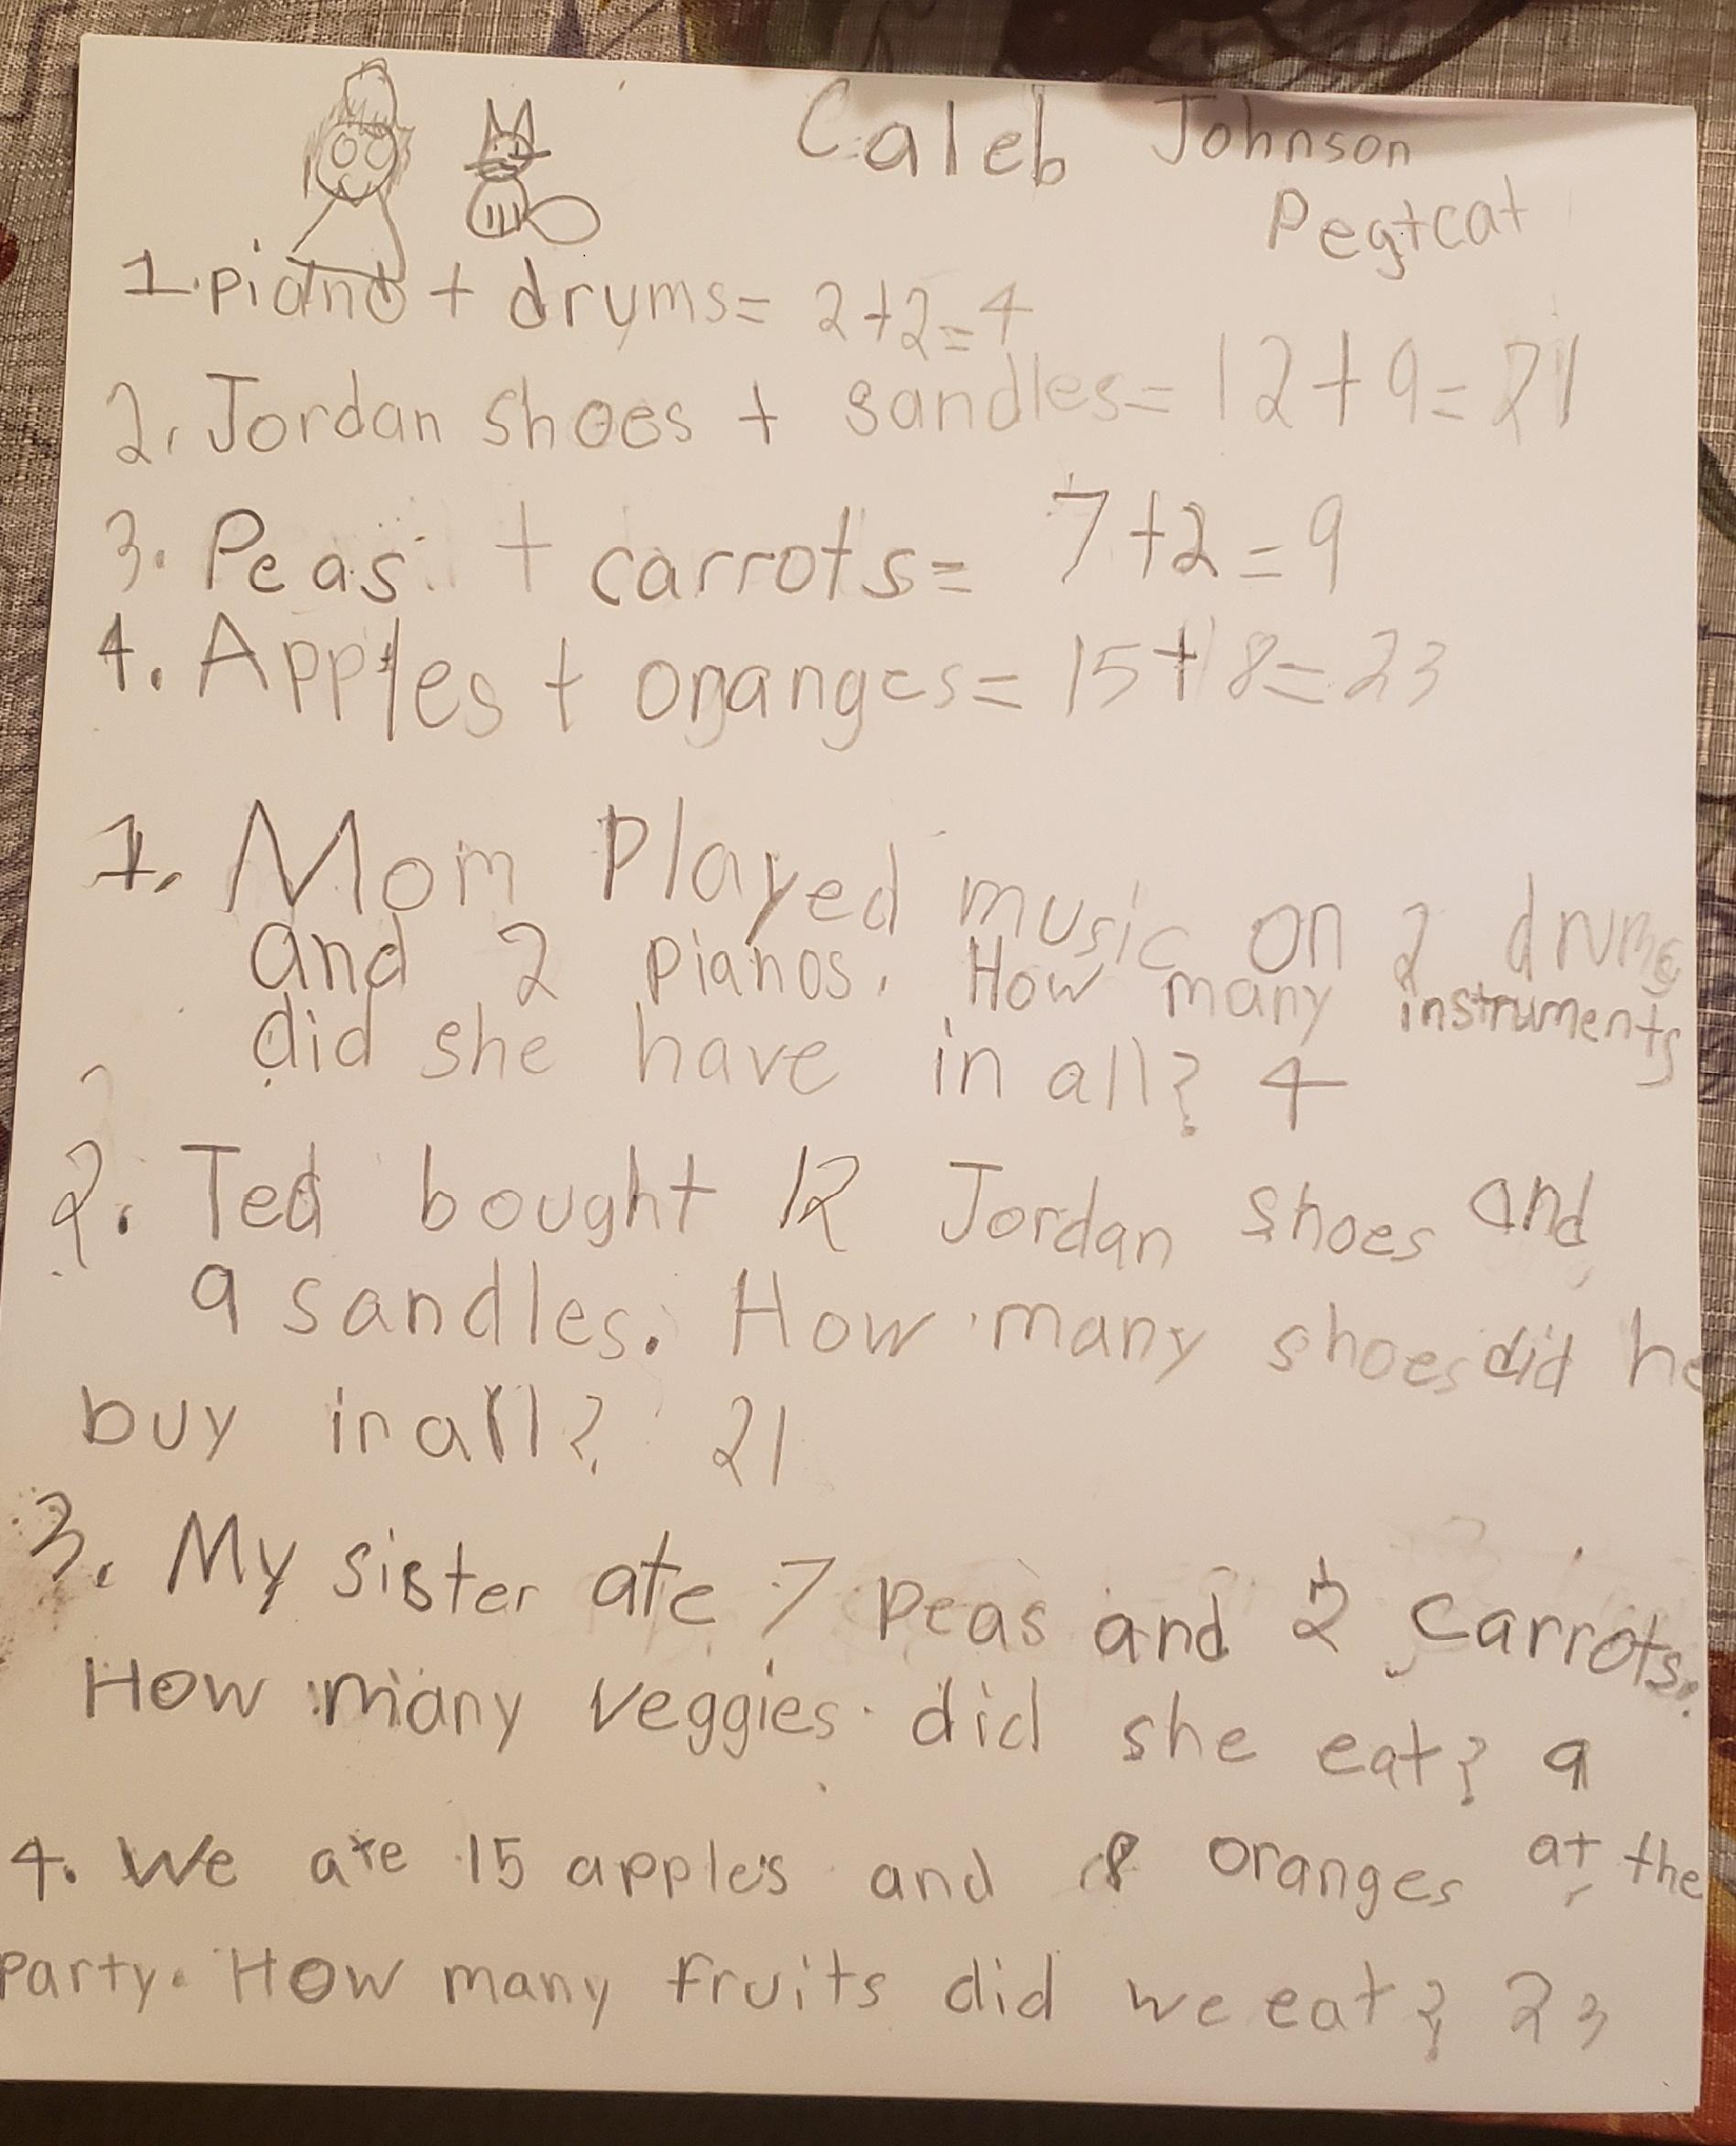 Caleb Johnson
Pegtcat
1. piano + drums = 2+2=4
2. Jordan shoes + sandles = 12+9=21
3. Peas + carrots = 7+2=9
4. Apples + oranges = 15+8=23
1. Mom Played music on 2 drums
and 2 pianos. How many instruments
did she have in all? 4
2. Ted bought 12 Jordan shoes and
9 sandles. How many shoes did he
buy in all? 21
3. My sister ate 7 peas and 2 carrots.
How many veggies did she eat? 9
4. We ate 15 apples and 8 oranges at the
Party. How many fruits did we eat? 23